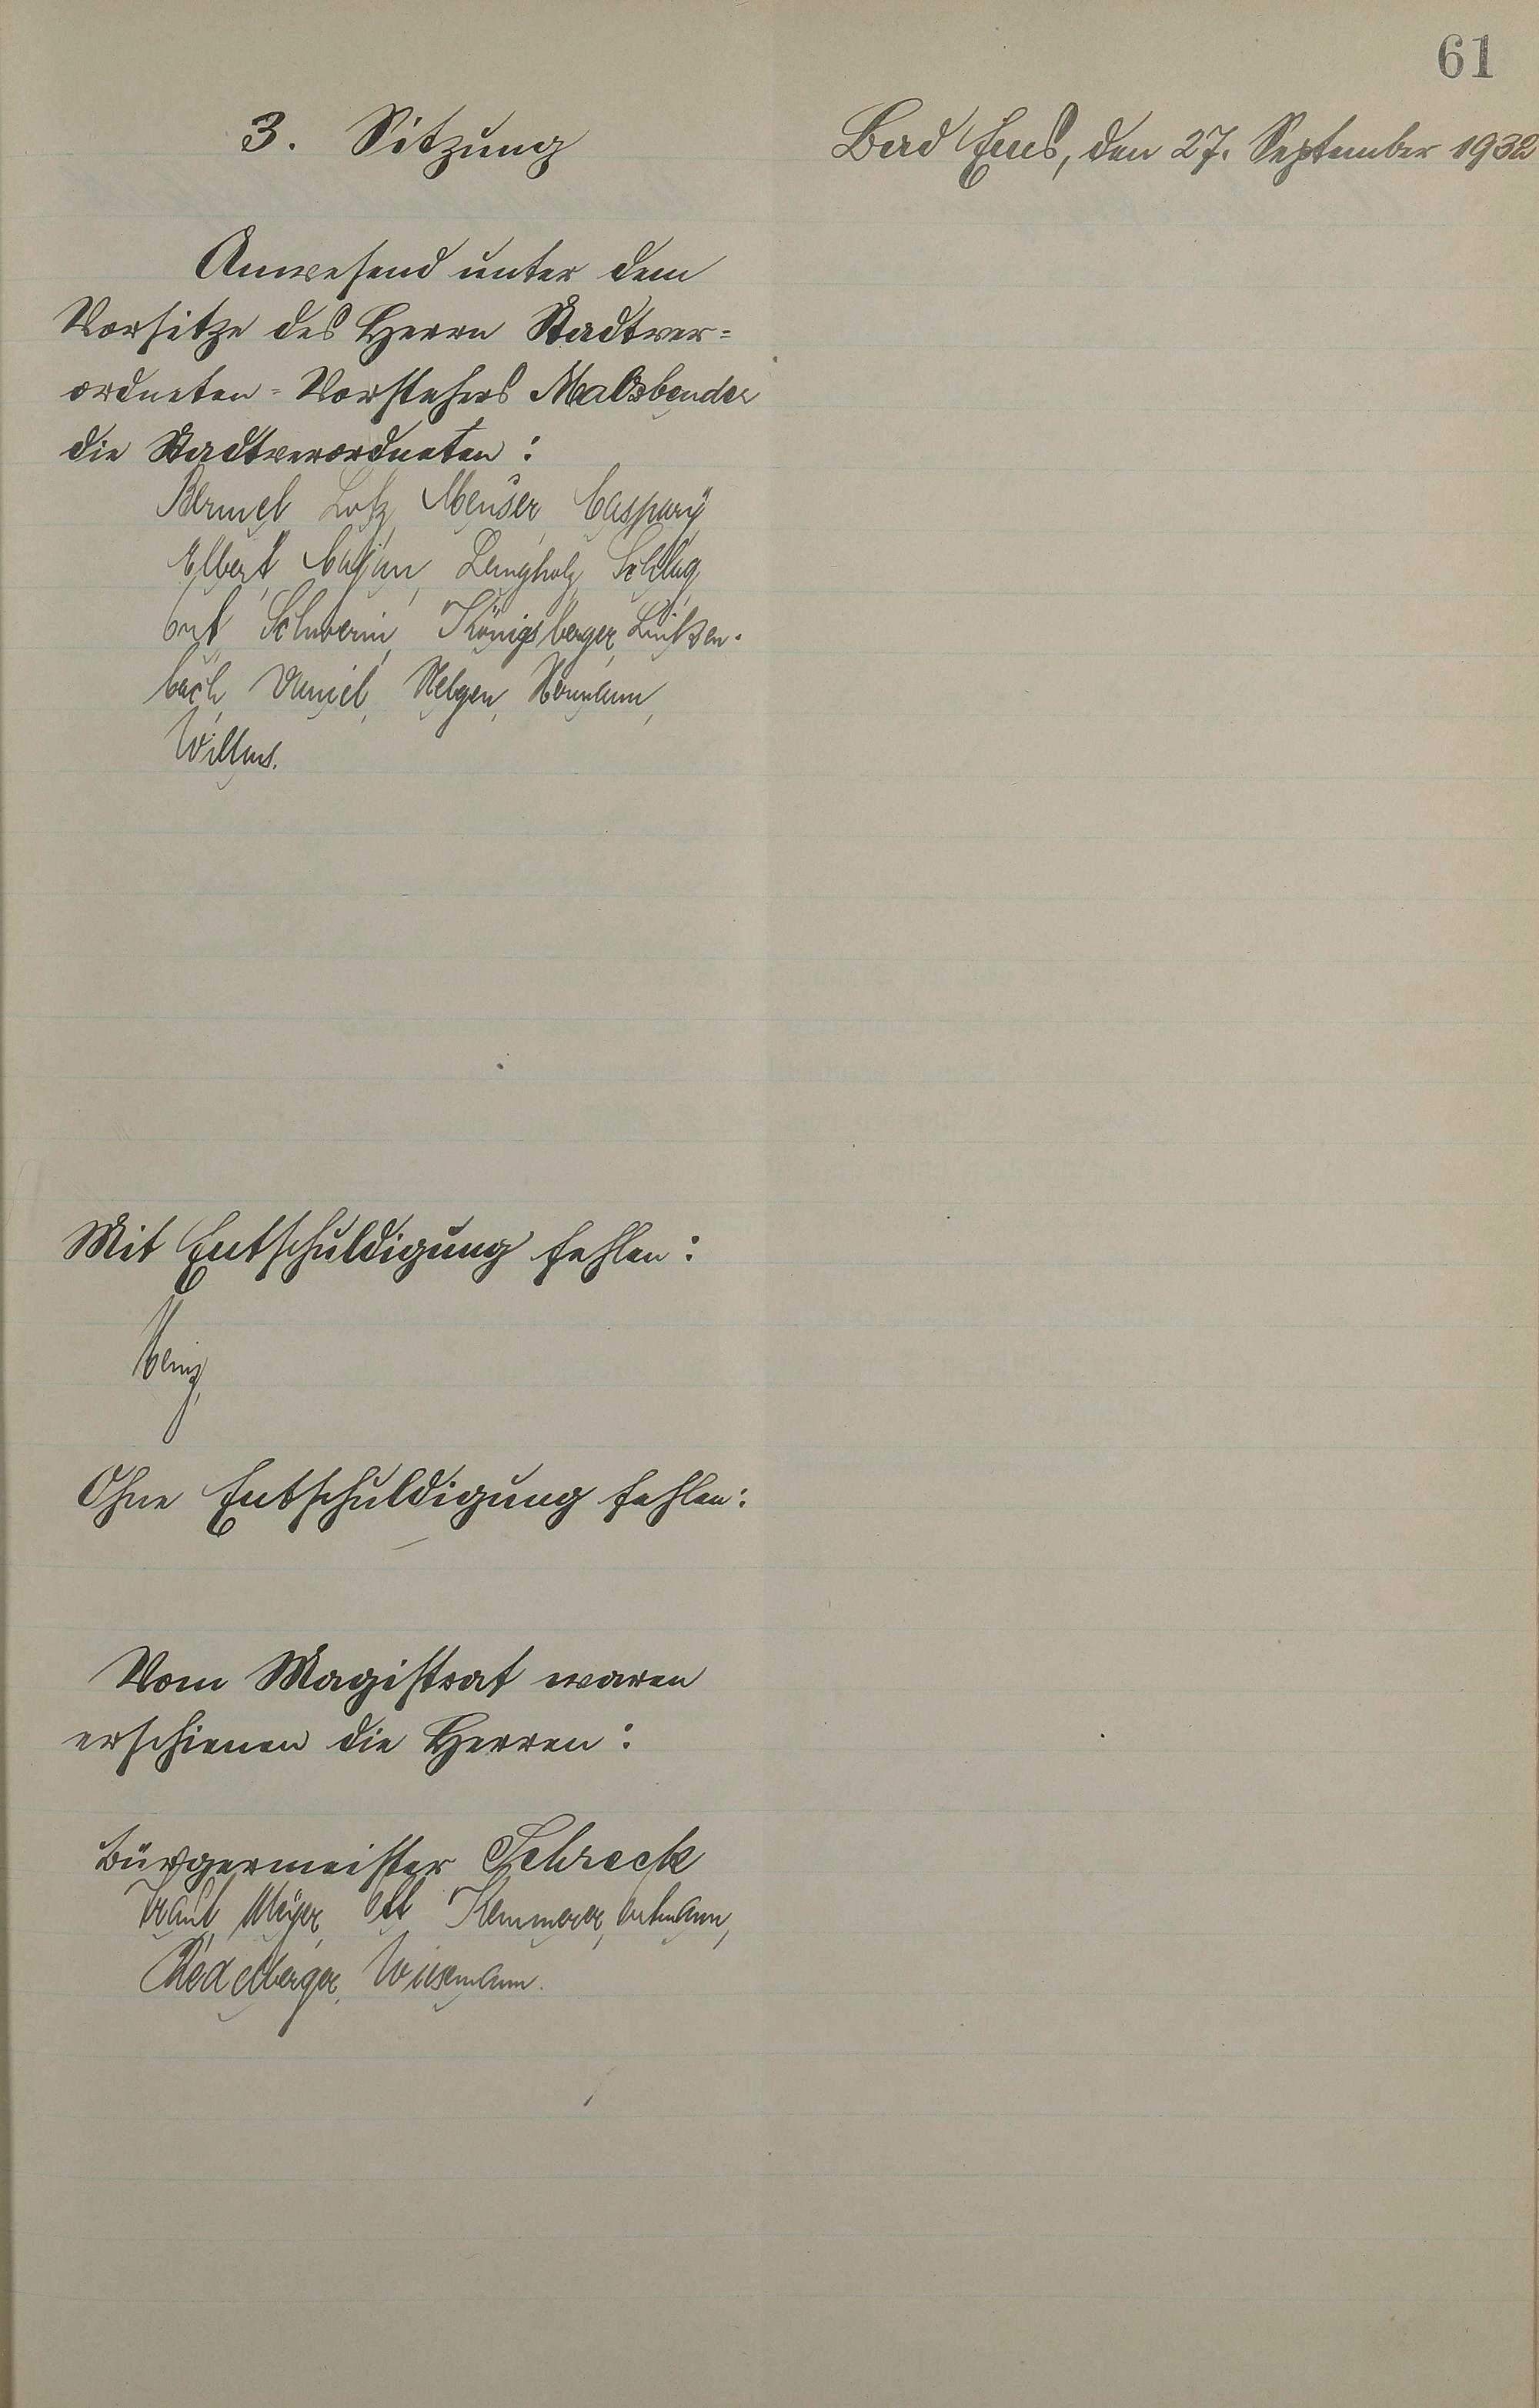 61
3. Sitzung
Bad Ems, den 27. September 1932
Anwesend unter dem
Vorsitze des Herrn Stadtver=
ordneten=Vorstehers Malzbender
die Stadtverordneten:
Bermel, Lotz, Meuser, Caspary,
Elbert, Langholz, Schlag,
Ort, Schwerin, Königsberger, Linken-
bach, Daniel, Helgen, Hermann,
Willms.
Mit Entschuldigung fehlen:
Ohne Entschuldigung fehlen:
Vom Magistrat waren
erschienen die Herren:
Bürgermeister Schreck
Meyer, Ott, Kemmerer,
Wiesemann.